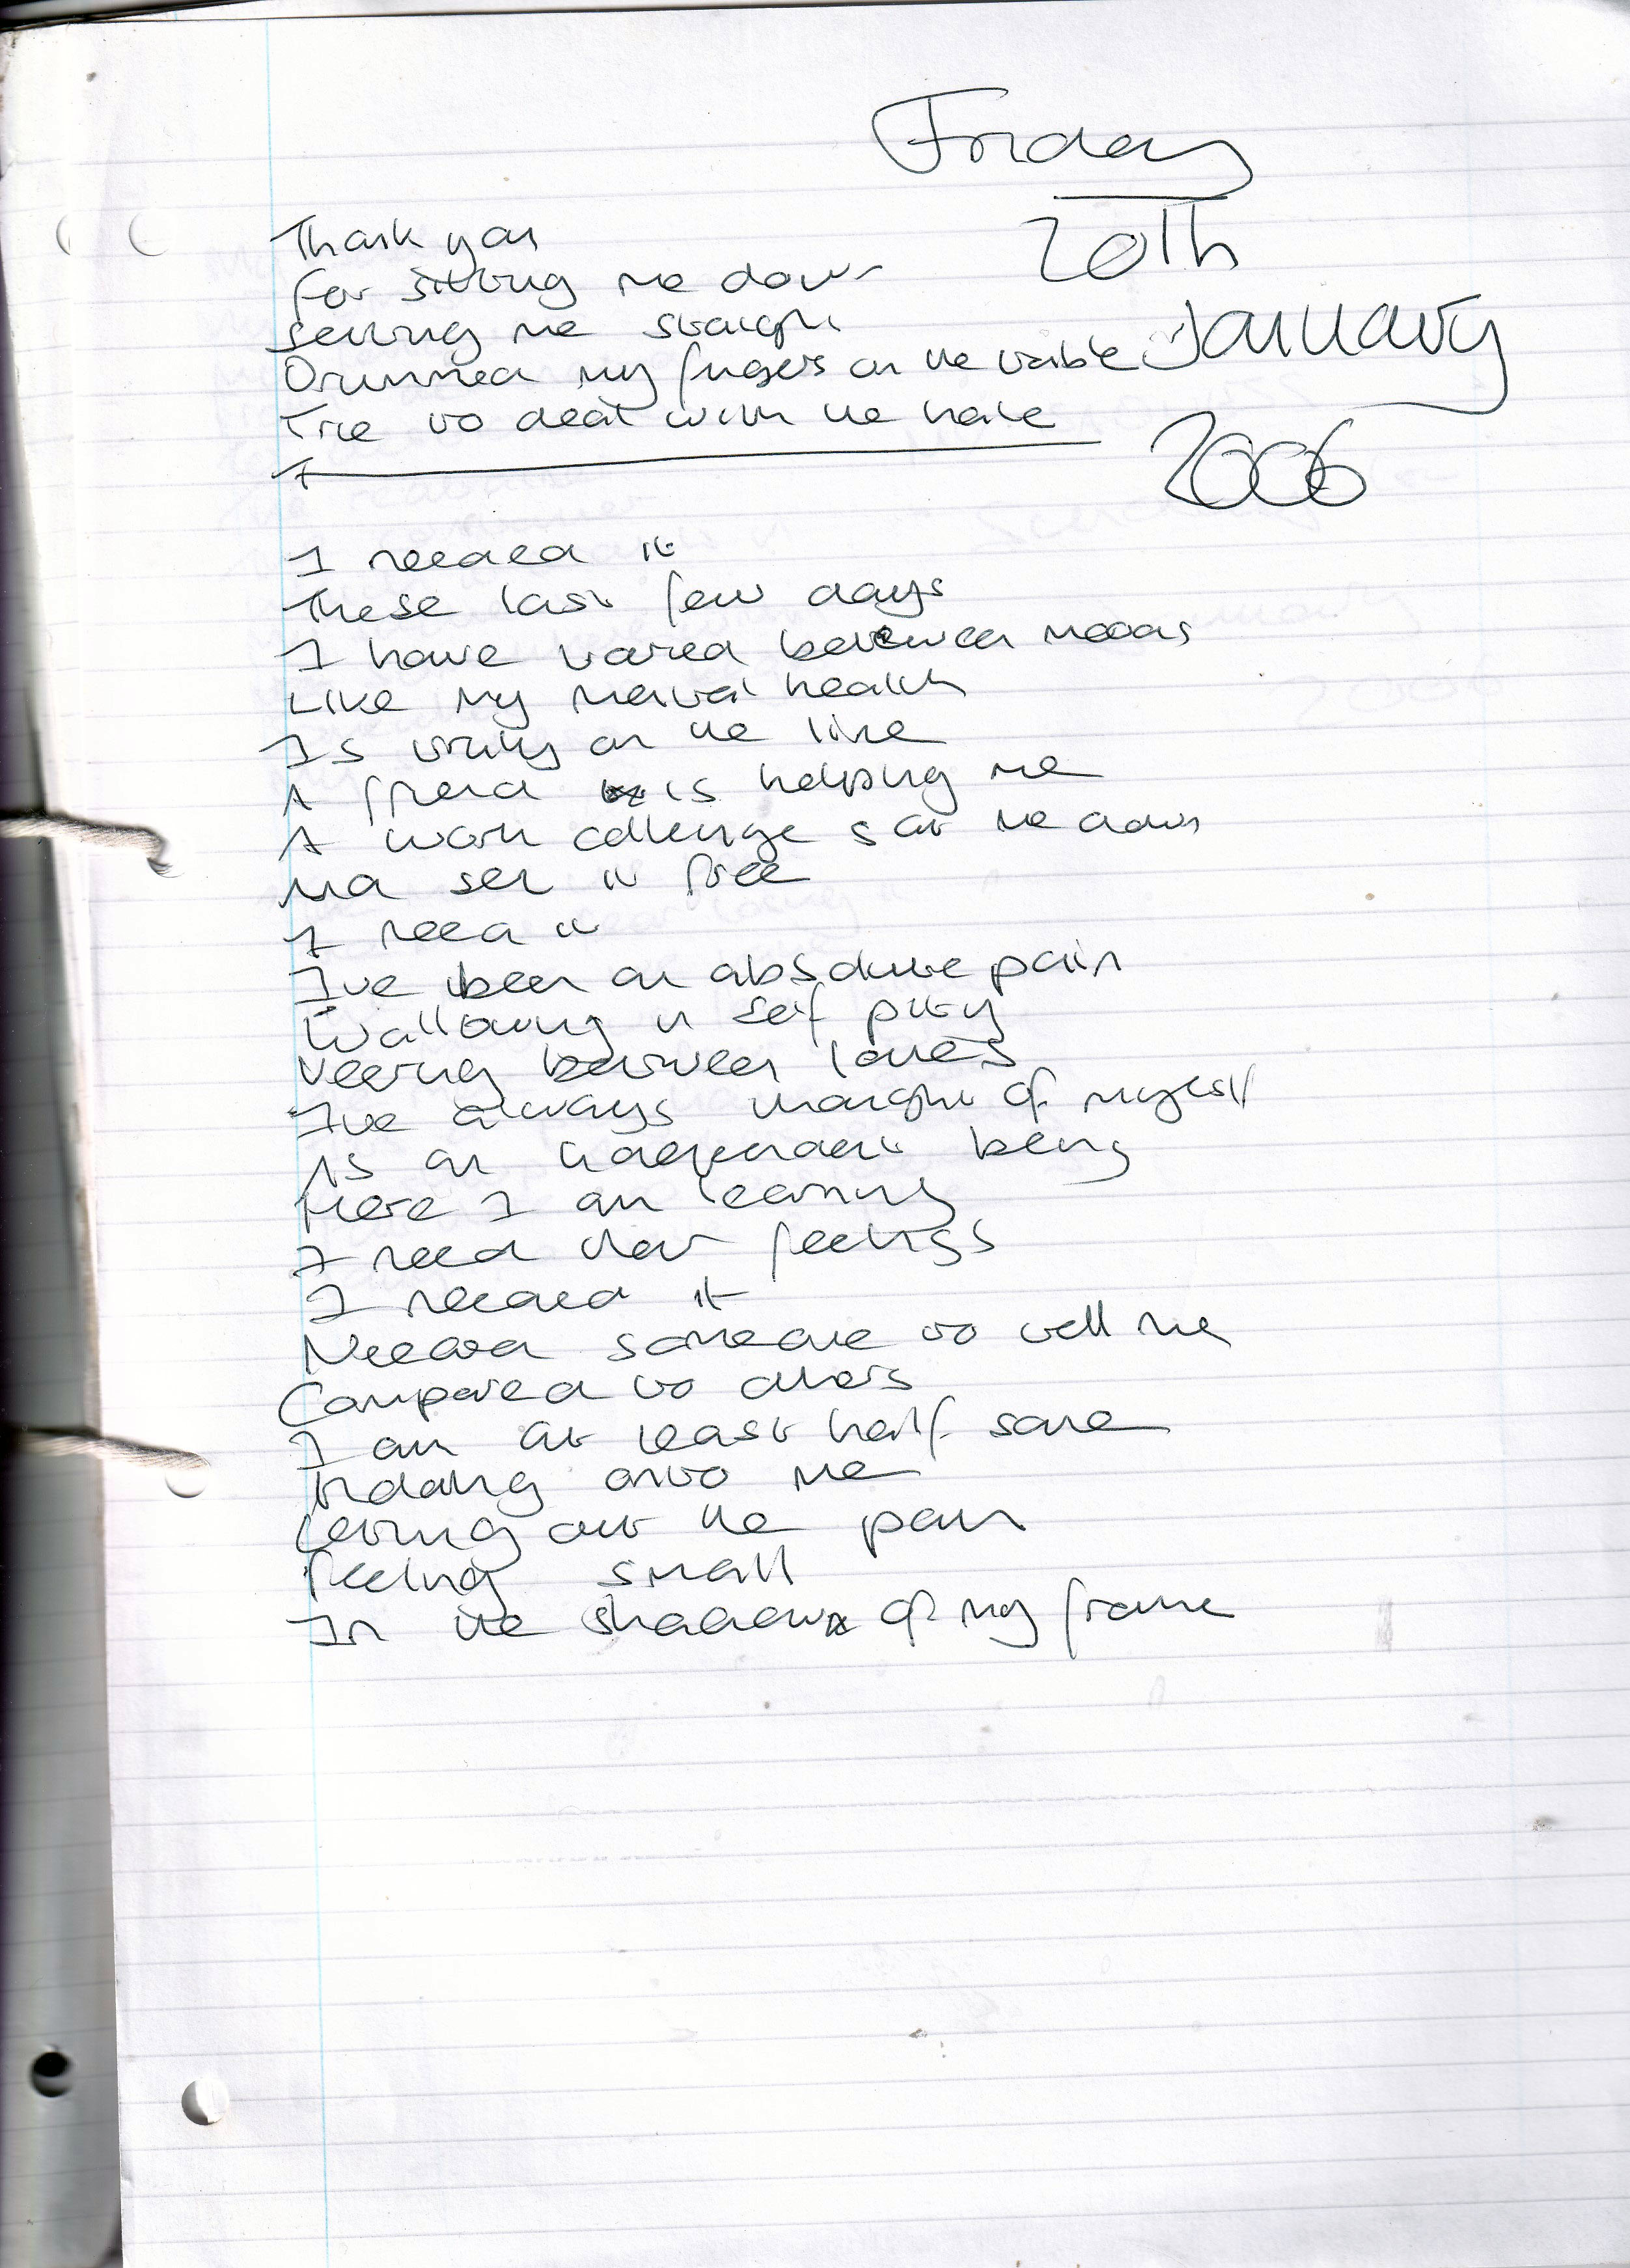 Friday
20Th
January
2006
Thank you
for sitting me down
setting me straight
Drummed my fingers on the table
Trie to deal with the hate
I
I needed it
These last few days
I have varied between moods
Like my mental health
Is on the line
A friend is helping me
A work collenge sat me down
And set it free
I need it
I've been an absolute pain
Wallowing in self pity
Veering between lanes
I've always thought of myself
As an independent being
Here I am learning
I need their feelings
I needed it
Needed someone to tell me
Compared to others
I am at least half sane
holding onto me
Letting out the pain
feeling small
In the shadow of my frame